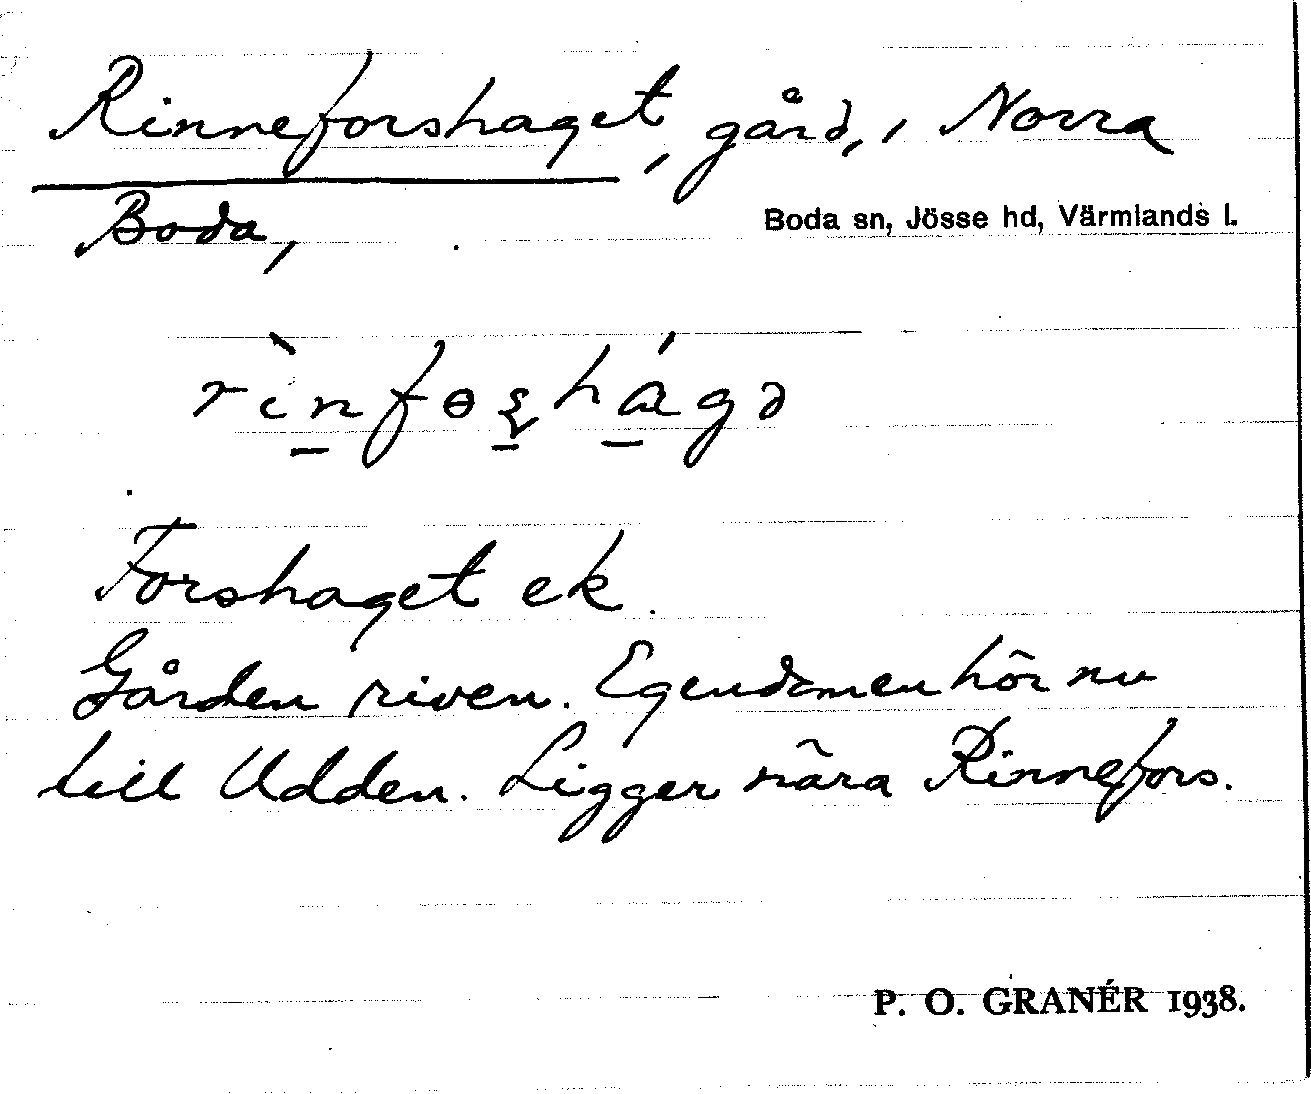 Rinneforshaget, gård, i Norra
Boda,
Boda sn, Jösse hd, Värmlands l.
rìnfɵʂhágə
Forshaget ek.
Gården riven. Egendomen hör nu
till Udden. Ligger nära Rinnefors.
P. O. GRANÉR 1938.